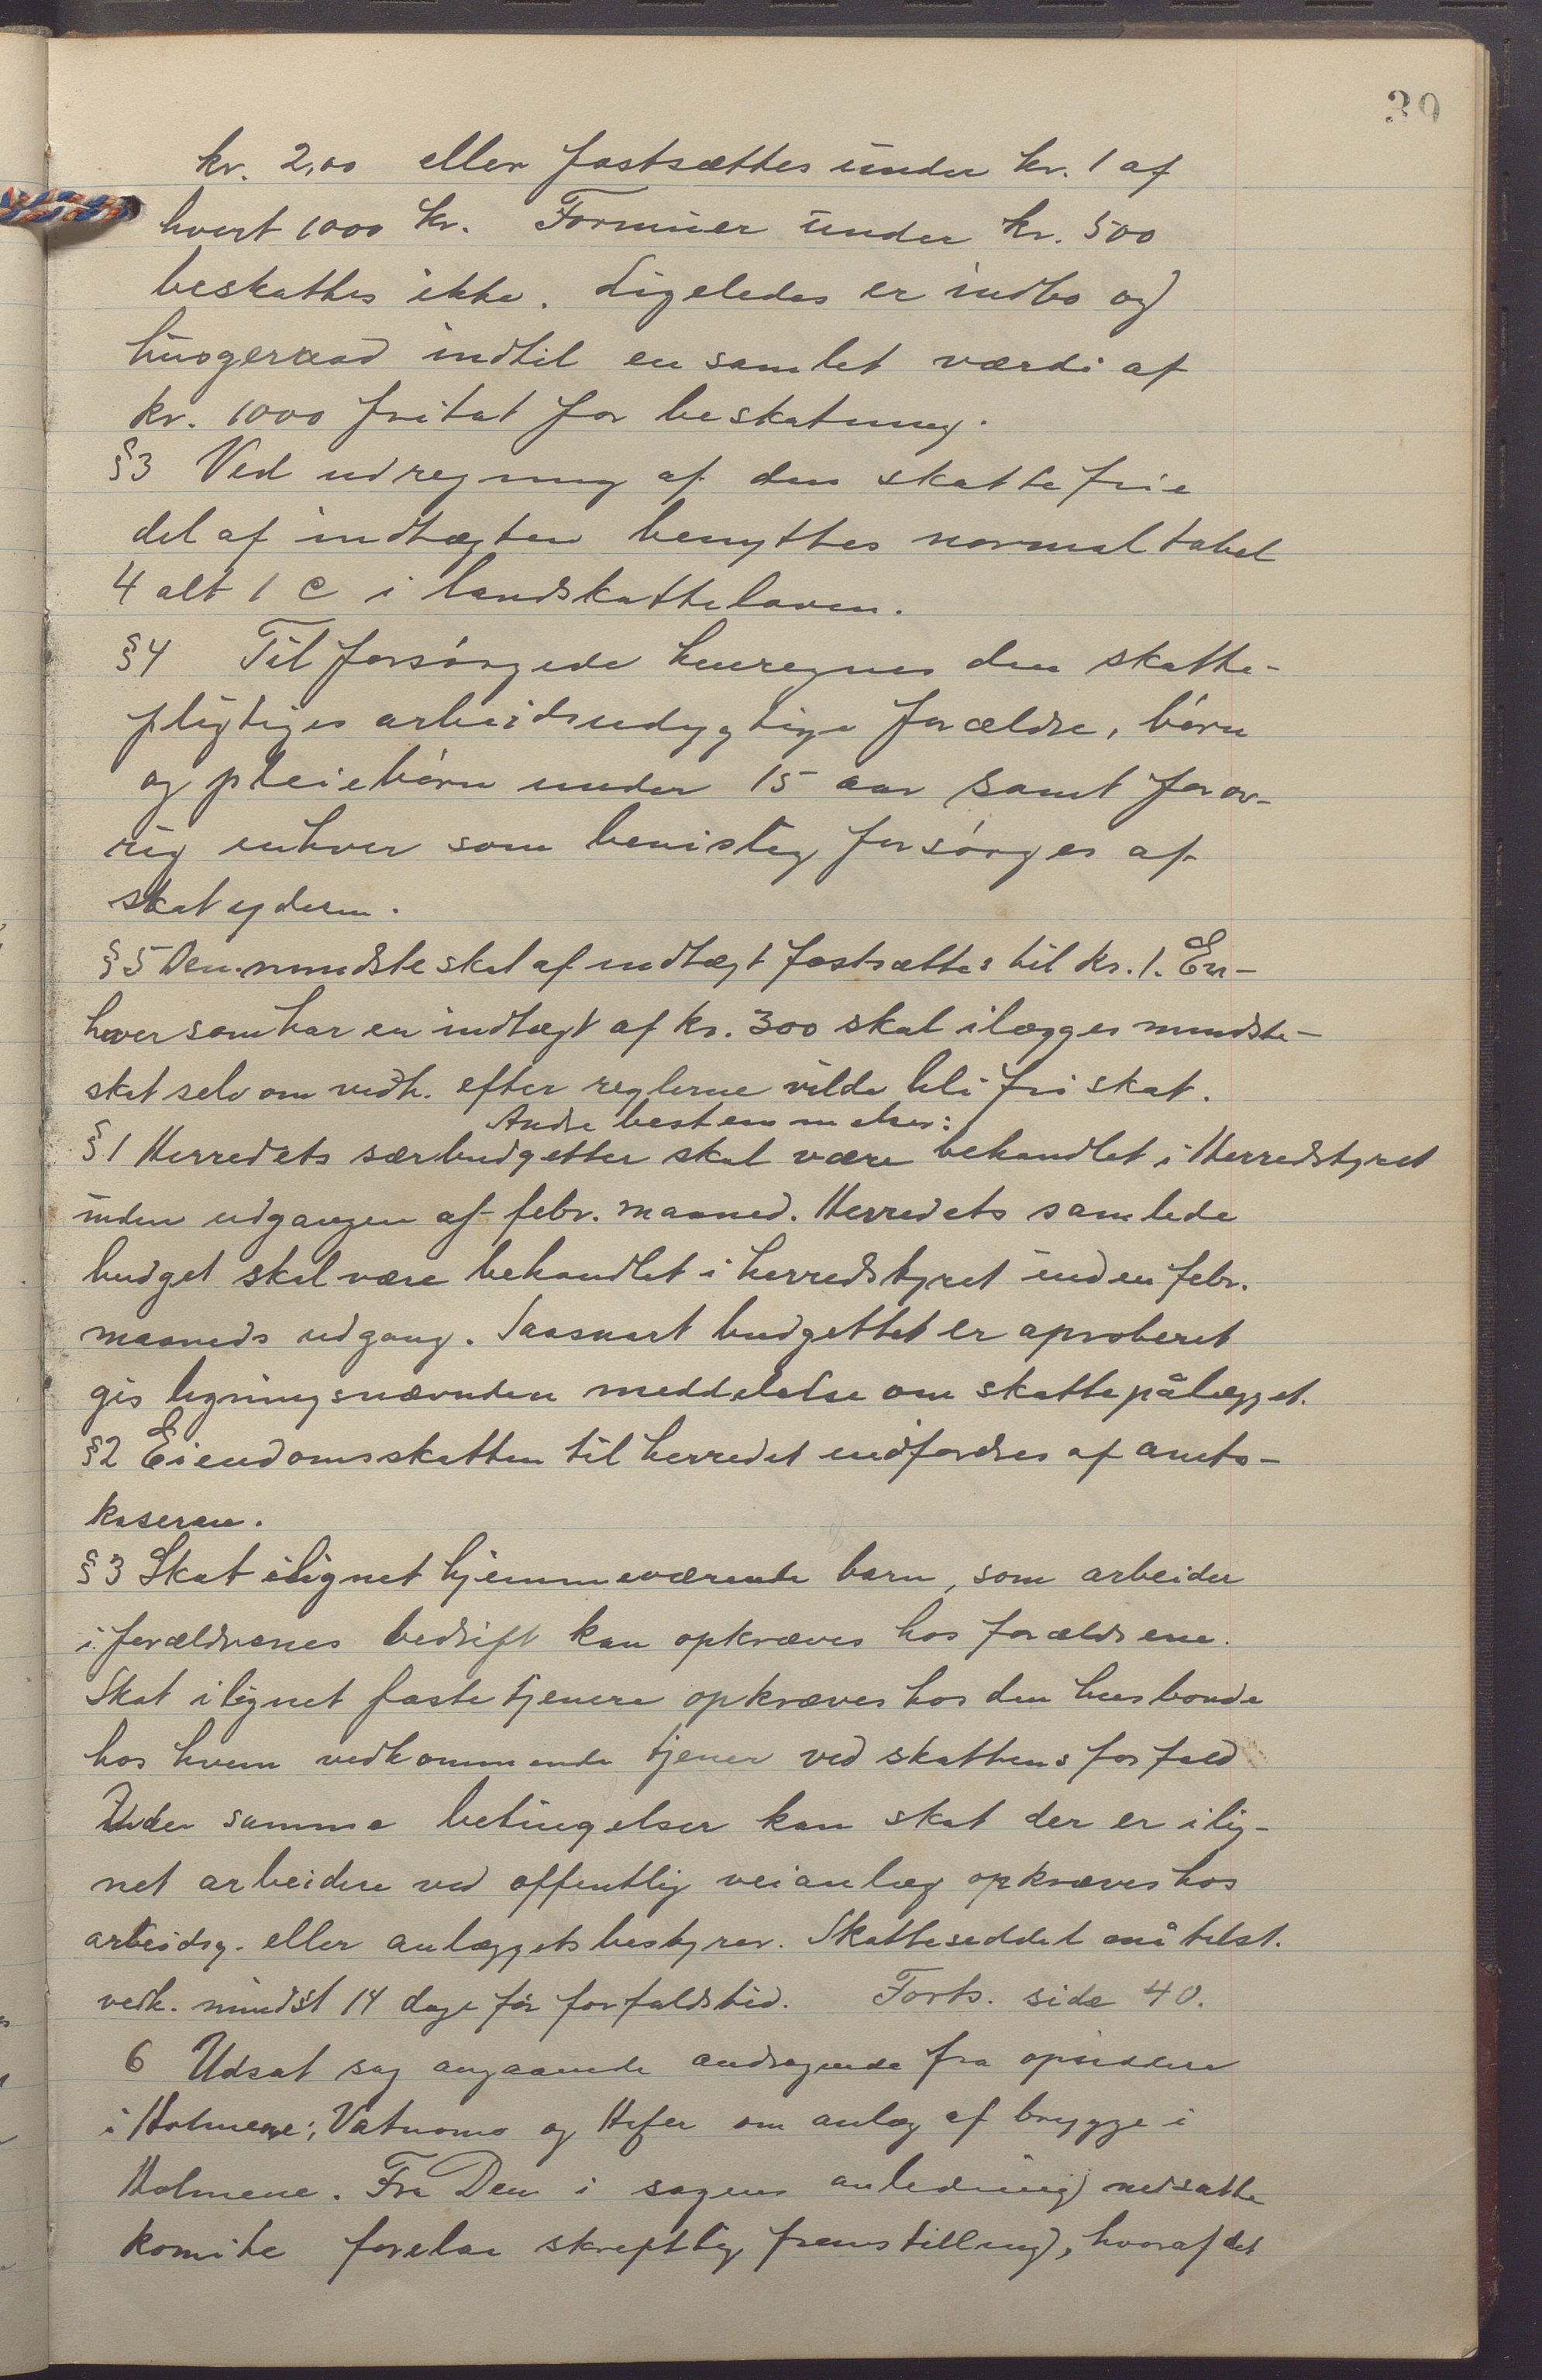 39
kr. 2,00 eller fastsættes under kr. 1 af
hvert 1000 kr. Formuer under kr. 500
beskattes ikke. Ligeledes er indbo og
husgeraad indtil en samlet værdi af
kr. 1000 fritat for beskatning.
§3 Ved udregning af den skattefrie
del af indtægten benyttes normaltabel
4 alt 1 c i landskatteloven.
§4 Til forsørgede henregnes den skatte-
pligtiges arbeidsudygtige forældre, børn
og pleiebørn under 15 aar samt forøv-
rig enhver som bevislig forsørges af
skatyderen.
§5 Den mindste skat af indtægt fastsættes til kr. 1. En-
hver som har en indtægt af kr. 300 skal ilægges mindste-
skat selv om vedk. efter reglerne vilde bli fri skat.
Andre bestemmelser:
§1 Herredets særbudgetter skal være behandlet i Herredstyret
inden udgangen af febr. maaned. Herredets samlede
budget skal være behandlet i herredstyret inden febr.
maaneds udgang. Saasnart budgettet er aproberet
gis ligningsnævnden meddelelse om skattepålægget.
§2 Eiendomsskatten til herredet indfordres af amts-
kaseren.
§3 Skat ilignet hjemmeværende barn, som arbeider
i forældrenes bedrift kan opkræves hos forældrene.
Skat ilignet faste tjenere opkræves hos den husbonde
hos hvem vedkommende tjener ved skattens forfald
Under samme betingelser kan skat der er ilig-
net arbeidere ved offentlig veianlæg opkræves hos
arbeidsg. eller anlæggets bestyrer. Skatteseddel må tilst.
vedk. mindst 14 dage før forfaldstid. Forts. side 40.
6 Udsat sag angaaende andragende fra opsiddere
i Holmene, Vatnamo og Hafer om anlæg af brygge i
Holmene. Fra Den i sagens anledning nedsatte
komite forelaa skriftlig fremstilling, hvoraf det